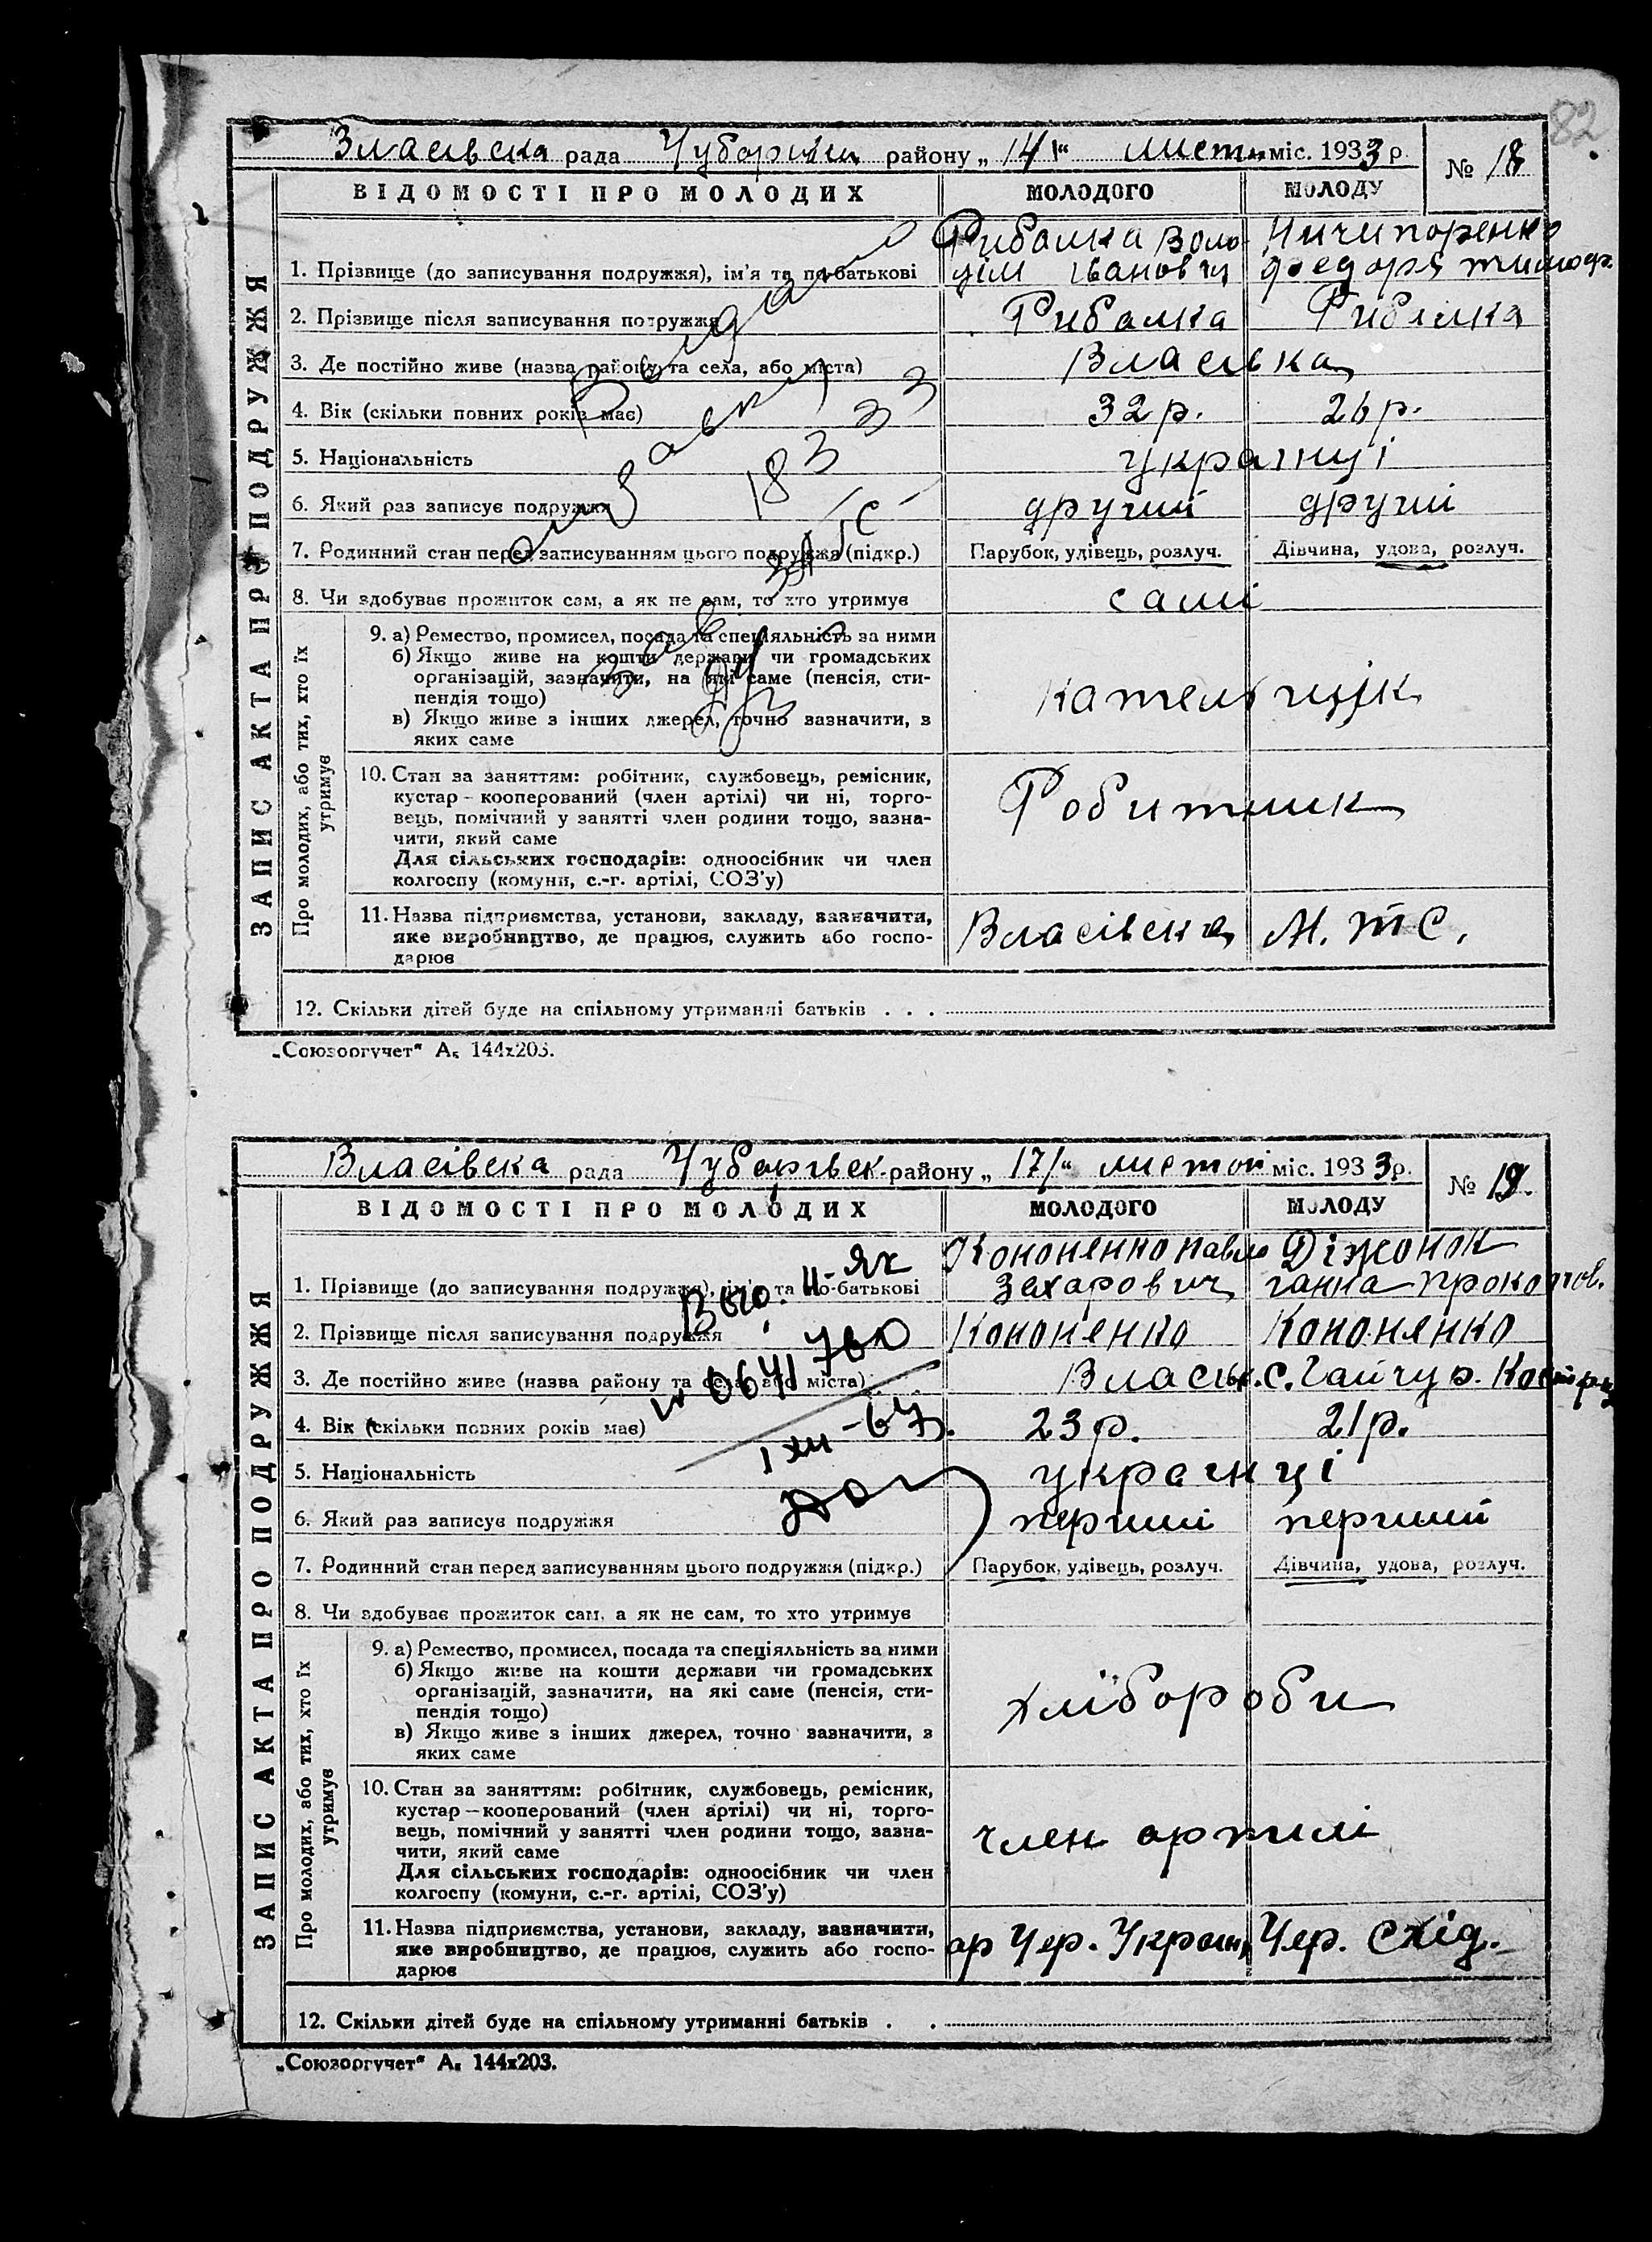 82
Власівска рада Чубарівськ району „14" листоп міс. 1933 р. № 18
ВІДОМОСТІ ПРО МОЛОДИХ МОЛОДОГО МОЛОДУ
Рибалка Воло- Ничипоренко
1. Прізвище (до записування подружжя), ім'я та по-батькові дім Іванович Федора Тимоф.
2. Прізвище після записування подружжя Рибалка Рибалка
3. Де постійно живе (назва району та села, або міста) Власівка
4. Вік (скільки повних років має) 32 р. 26 р.
5. Національність українці
6. Який раз записує подружжя другий другий
7. Родинний стан перед записуванням цього подружжя (підкр.) Парубок, удівець, розлуч. Дівчина, удова, розлуч.
8. Чи здобуває прожиток сам, а як не сам, то хто утримує самі
9. а) Ремество, промисел, посада та спеціяльність за ними
б) Якщо живе на кошти держави чи громадських
організацій, зазначити, на які саме (пенсія, сти-
пендія тощо)
в) Якщо живе з інших джерел, точно зазначити, з
яких саме
10. Стан за заняттям: робітник, службовець, ремісник,
кустар – кооперований (член артілі) чи ні, торго-
вець, помічний у занятті член родини тощо, зазна-
чити, який саме
Робитник
Для сільських господарів: одноосібник чи член
колгоспу (комуни, с.-г. артілі, СОЗ'у)
11. Назва підприємства, установи, закладу, зазначити,
яке виробництво, де працює, служить або госпо-
дарює
Власівска М.Т.С.
12. Скільки дітей буде на спільному утриманні батьків . . .
ЗАПИС АКТА ПРО ПОДРУЖЖЯ
Про молодих, або тих, хто їх
утримує
„Союзоргучет" А₅ 144x203.
Власівска рада Чубарівськ. району „17" листоп міс. 1933 р. № 19.
ВІДОМОСТІ ПРО МОЛОДИХ МОЛОДОГО МОЛОДУ
Кононенко Павло Діжонок
1. Прізвище (до записування подружжя), ім'я та по-батькові Захарович Ганна Прокопов.
2. Прізвище після записування подружжя Кононенко Кононенко
3. Де постійно живе (назва району та села, або міста) Власівк. С. Гайчур.
4. Вік (скільки повних років має) 23 р. 21 р.
5. Національність українці
6. Який раз записує подружжя перший перший
7. Родинний стан перед записуванням цього подружжя (підкр.) Парубок, удівець, розлуч. Дівчина, удова, розлуч.
8. Чи здобуває прожиток сам, а як не сам, то хто утримує
9. а) Ремество, промисел, посада та спеціяльність за ними
б) Якщо живе на кошти держави чи громадських
організацій, зазначити, на які саме (пенсія, сти-
пендія тощо)
в) Якщо живе з інших джерел, точно зазначити, з
яких саме
хлібороби
10. Стан за заняттям: робітник, службовець, ремісник,
кустар – кооперований (член артілі) чи ні, торго-
вець, помічний у занятті член родини тощо, зазна-
чити, який саме
член артилі
Для сільських господарів: одноосібник чи член
колгоспу (комуни, с.-г. артілі, СОЗ'у)
11. Назва підприємства, установи, закладу, зазначити,
яке виробництво, де працює, служить або госпо-
дарює
ар Чер. Україн. Чер. Схід.
12. Скільки дітей буде на спільному утриманні батьків . .
ЗАПИС АКТА ПРО ПОДРУЖЖЯ
Про молодих, або тих, хто їх
утримує
„Союзоргучет" А₅ 144x203.